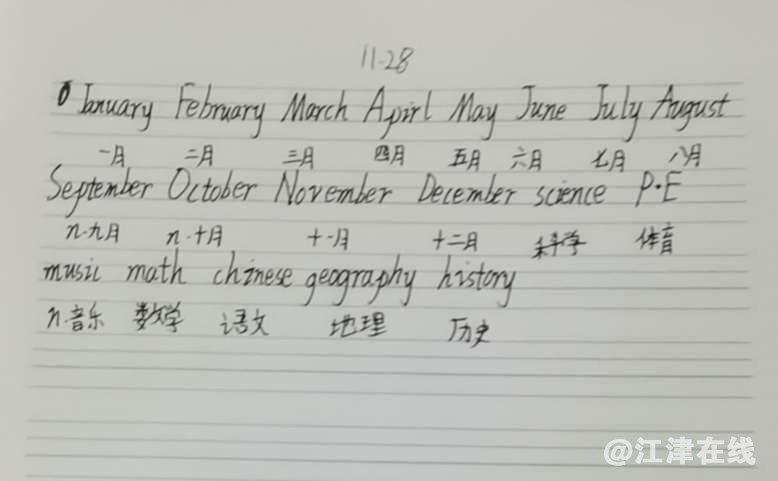 11-28
January February March Apirl May June July August
一月 二月 三月 四月 五月 六月 七月 八月
September October November December science P.E
n.九月 n.十月 十一月 十二月 科学 体育
music math chinese geography history
n.音乐 数学 语文 地理 历史
@江津在线